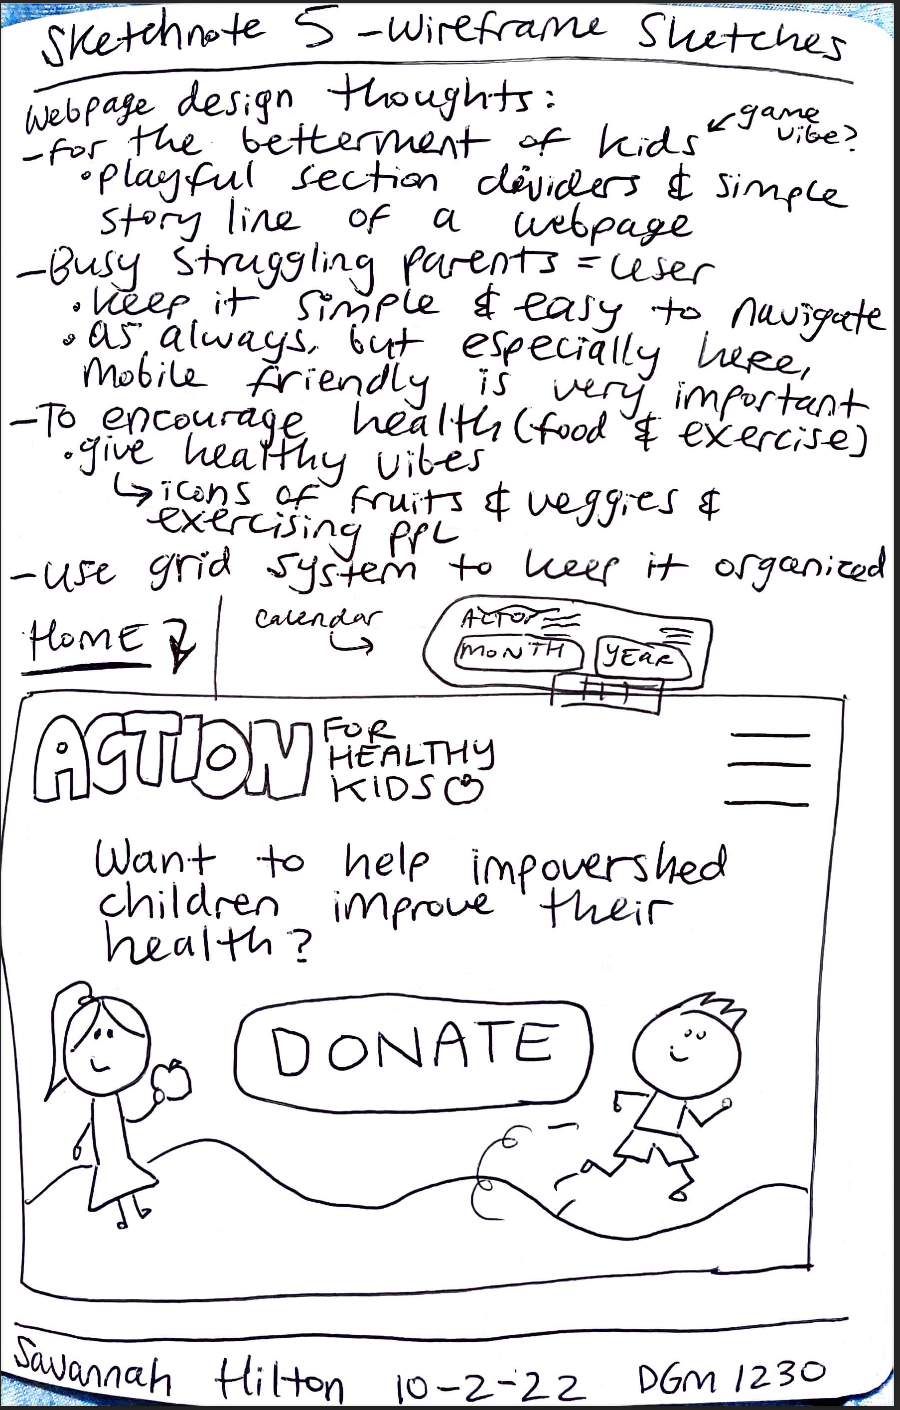 Sketchnote 5 - Wireframe Sketches
Webpage design thoughts:
- for the betterment of kids
game
vibe?
• playful section dividers & simple
story line of a webpage
- Busy struggling parents = user
• keep it simple & easy to navigate
• as always, but especially here,
mobile friendly is very important
- To encourage health (food & exercise)
• give healthy vibes
↳ icons of fruits & veggies &
exercising ppl
- use grid system to keep it organized
HOME
calendar
MONTH YEAR
ACTION FOR
HEALTHY
KIDS
Want to help impovershed
children improve their
health?
DONATE
Savannah Hilton 10-2-22 DGM 1230